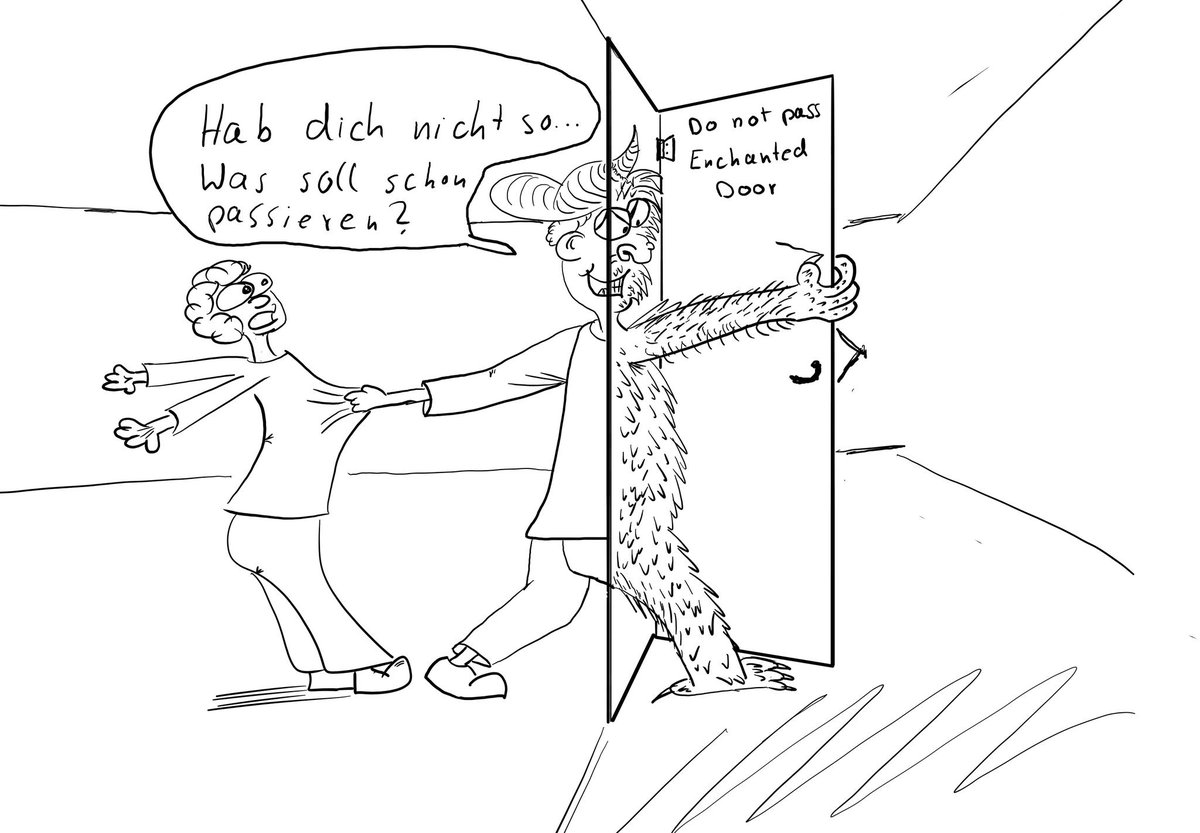 Hab dich nicht so...
Was soll schon
passieren?
Do not pass
Enchanted
Door